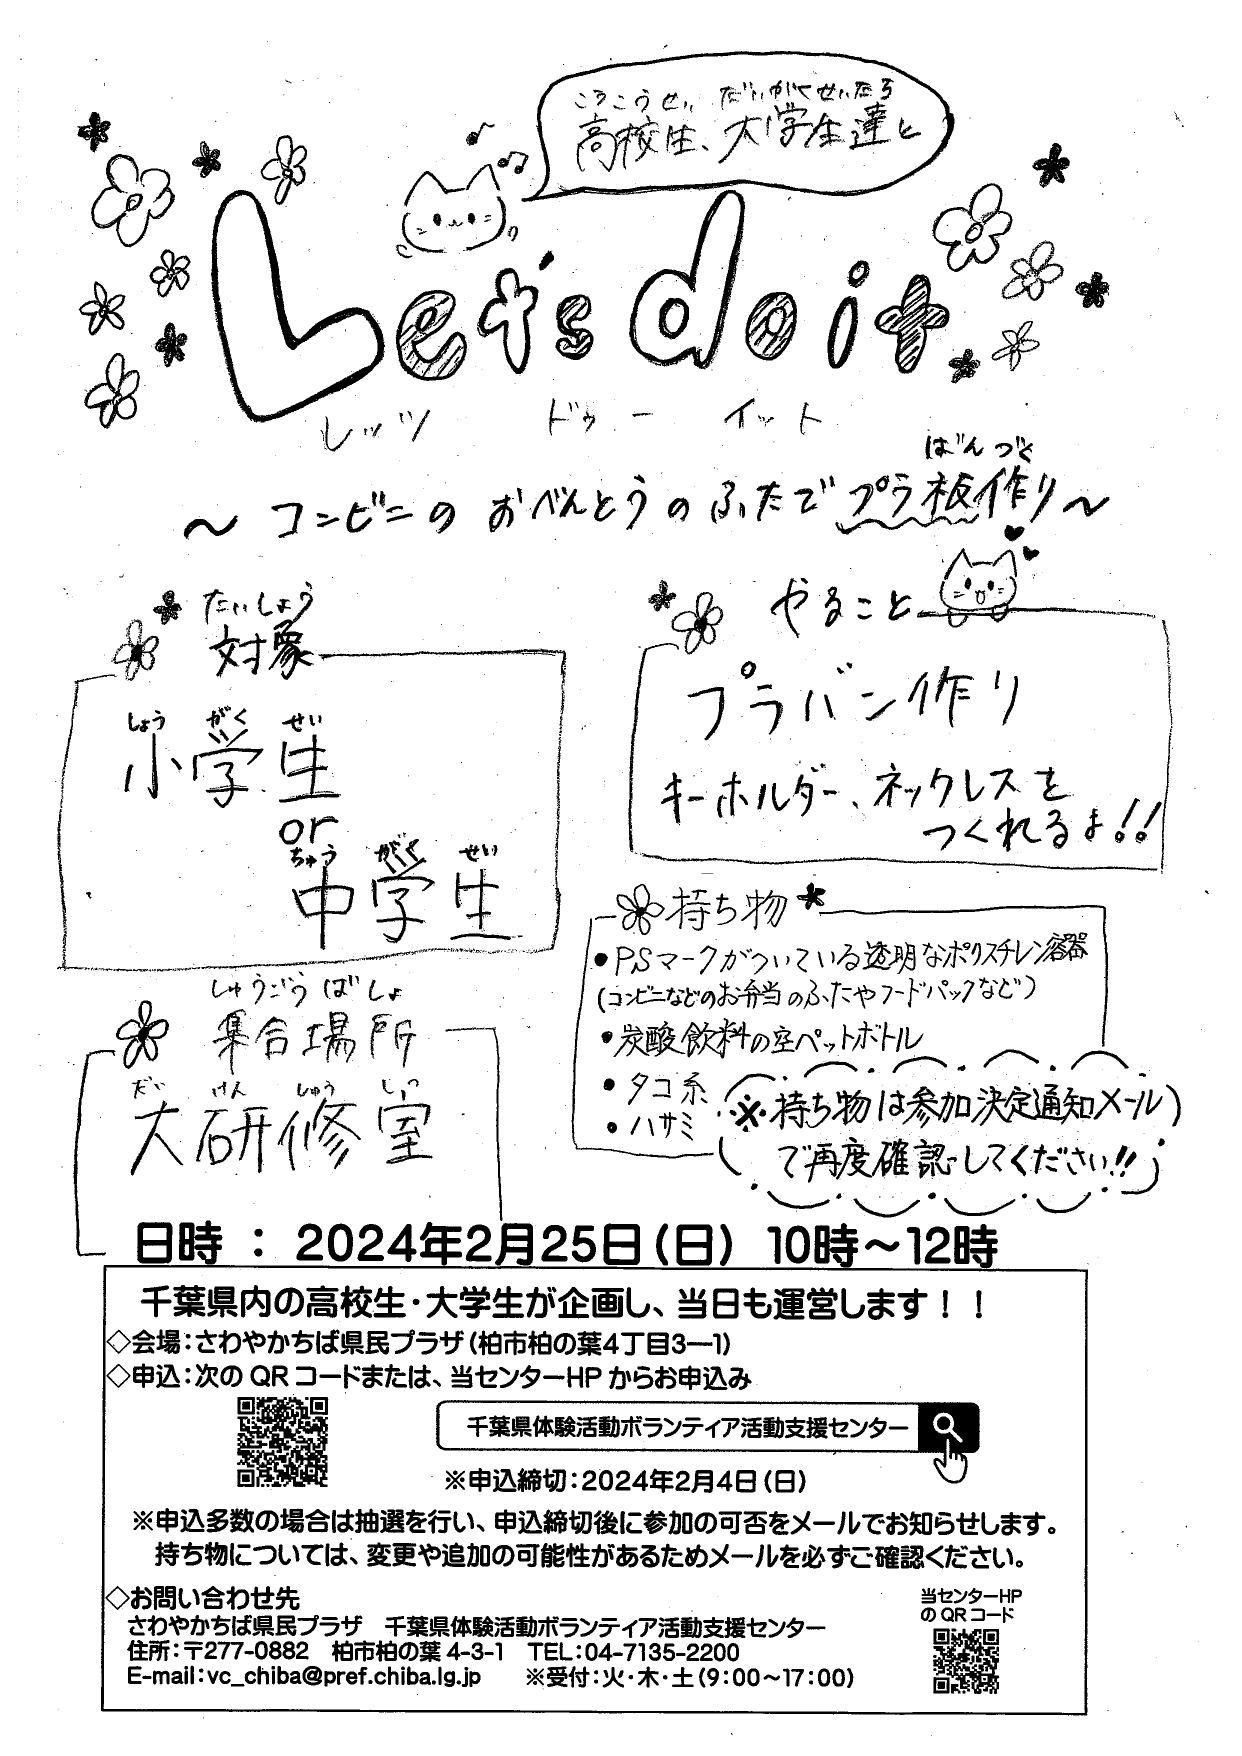 こうこうせい だいがくせいたち
高校生、大学生達と
Let's do it
レッツ ドゥー イット
ばんづく
～コンビニのおべんとうのふたでプラ板作り～
たいしょう
対象
しょう がく せい
小学生
or
ちゅう がく せい
中学生
やること
プラバン作り
キーホルダー、ネックレスを
つくれるよ!!
持ち物
・PSマークがついている透明なポリスチレン容器
(コンビニなどのお弁当のふたやフードパックなど)
・炭酸飲料の空ペットボトル
・タコ糸
・ハサミ
※持ち物は参加決定通知メール
で再度確認してください!!
しゅうごう ばしょ
集合場所
だい けん しゅう しつ
大研修室
日時 ： 2024年2月25日(日) 10時～12時
千葉県内の高校生・大学生が企画し、当日も運営します！！
◇会場：さわやかちば県民プラザ(柏市柏の葉4丁目3―1)
◇申込：次のQRコードまたは、当センターHPからお申込み
千葉県体験活動ボランティア活動支援センター
※申込締切：2024年2月4日(日)
※申込多数の場合は抽選を行い、申込締切後に参加の可否をメールでお知らせします。
持ち物については、変更や追加の可能性があるためメールを必ずご確認ください。
◇お問い合わせ先
さわやかちば県民プラザ　千葉県体験活動ボランティア活動支援センター
住所：〒277-0882　柏市柏の葉4-3-1　TEL：04-7135-2200
E-mail：vc_chiba@pref.chiba.lg.jp　※受付：火・木・土(9：00～17：00)
当センターHP
のQRコード